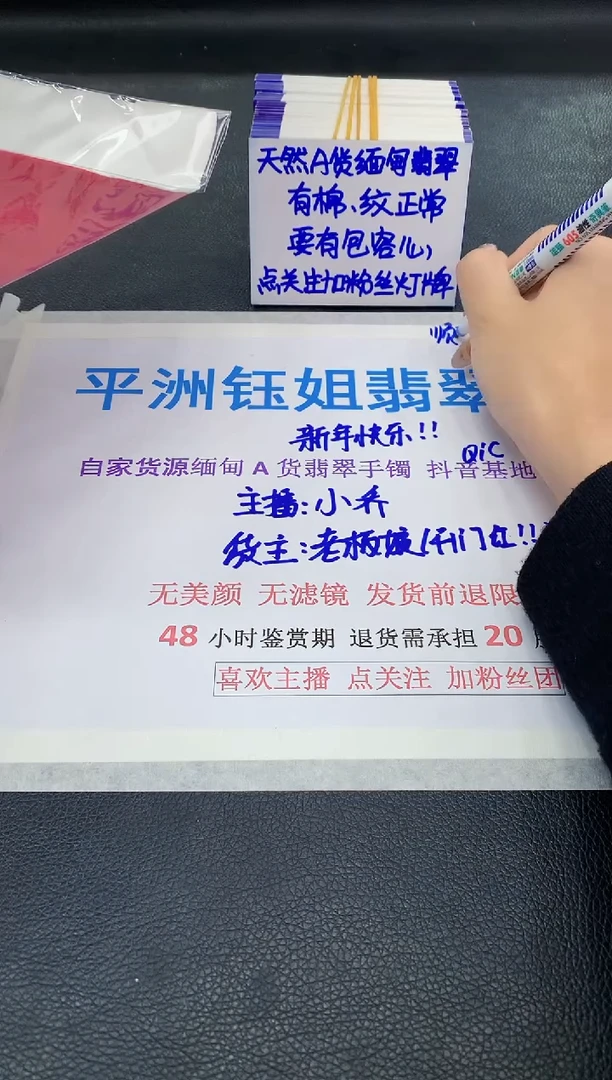 天然A货缅甸翡翠
有棉、纹正常
要有包容心,
点关注加粉丝灯牌
顺
平洲钰姐翡翠
新年快乐!!
QiC
自家货源缅甸 A 货翡翠手镯 抖音基地
主播:小乔
货主:老板娘(开门红!!
无美颜 无滤镜 发货前退限
48 小时鉴赏期 退货需承担 20
喜欢主播 点关注 加粉丝团